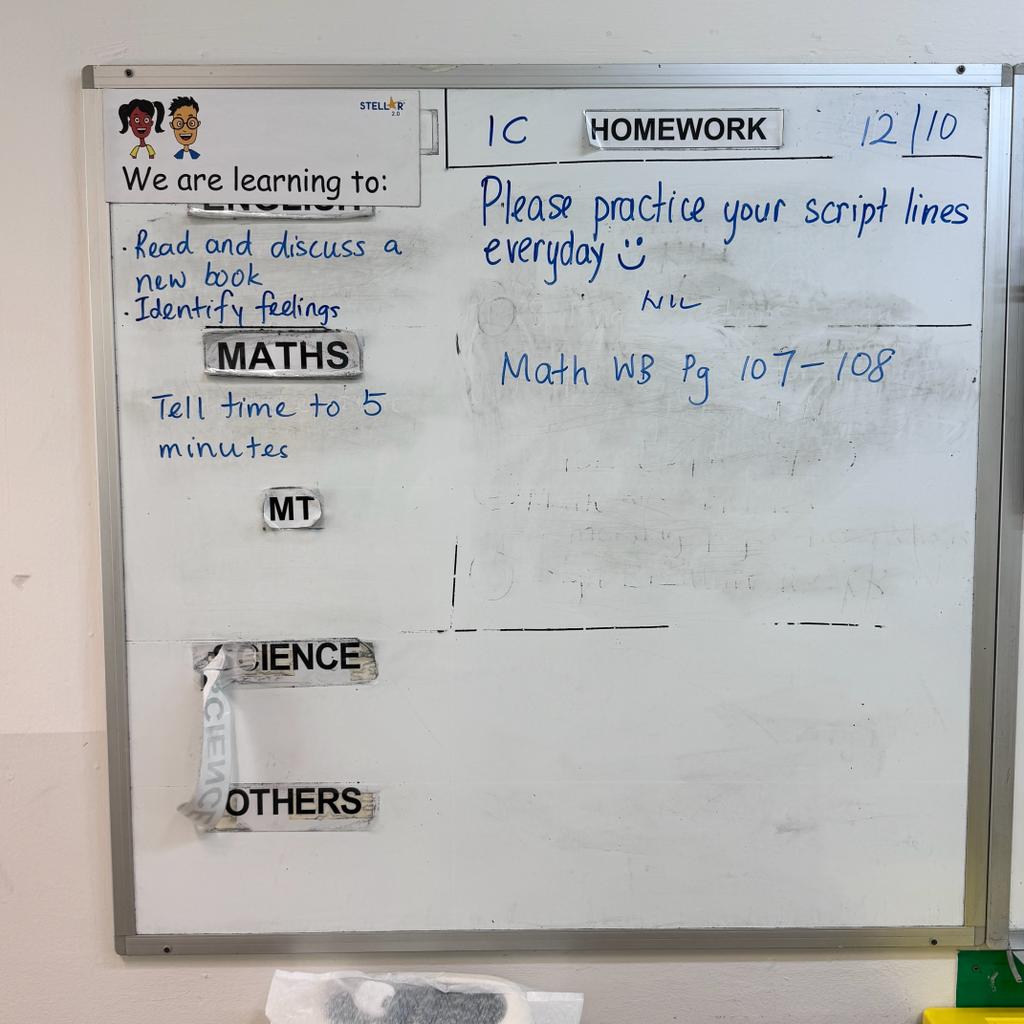 STELLAR
2.0
We are learning to:
ENGLISH
· Read and discuss a
new book
· Identify feelings
MATHS
Tell time to 5
minutes
MT
SCIENCE
SCIENCE
OTHERS
1C HOMEWORK 12/10
Please practice your script lines
everyday
NIL
Math WB Pg 107-108